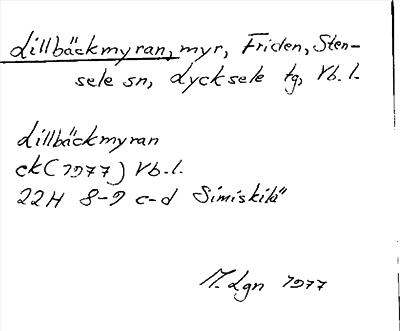 Lillbäckmyran, myr, Friden, Sten-
sele sn, Lycksele tg, Vb. l.
Lillbäckmyran
ck (1977) Vb. l.
22H 8-9 c-d Simiskilä
M. Lgn 1977